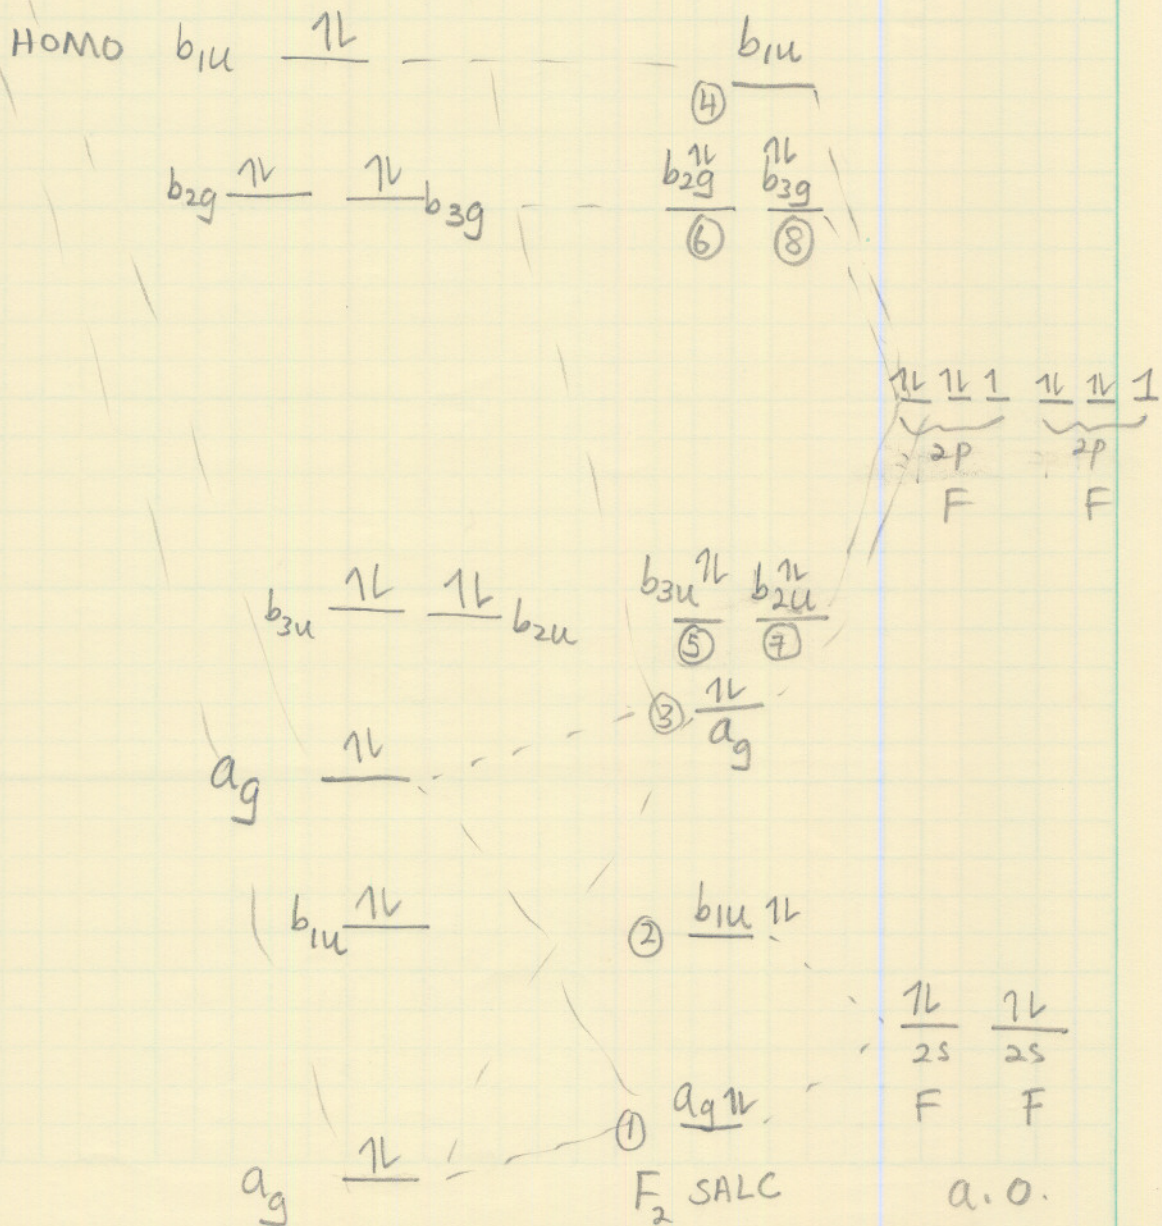 HOMO b1u 1L b1u
④
b2g 1L 1L b3g b2g 1L b3g 1L
⑥ ⑧
1L 1L 1 1L 1L 1
2p 2p
F F
b3u 1L 1L b2u b3u 1L b2u 1L
⑤ ⑦
③ 1L
ag
ag 1L
b1u 1L ② b1u 1L
1L 1L
2s 2s
F F
① ag 1L
ag 1L
F2 SALC a.o.